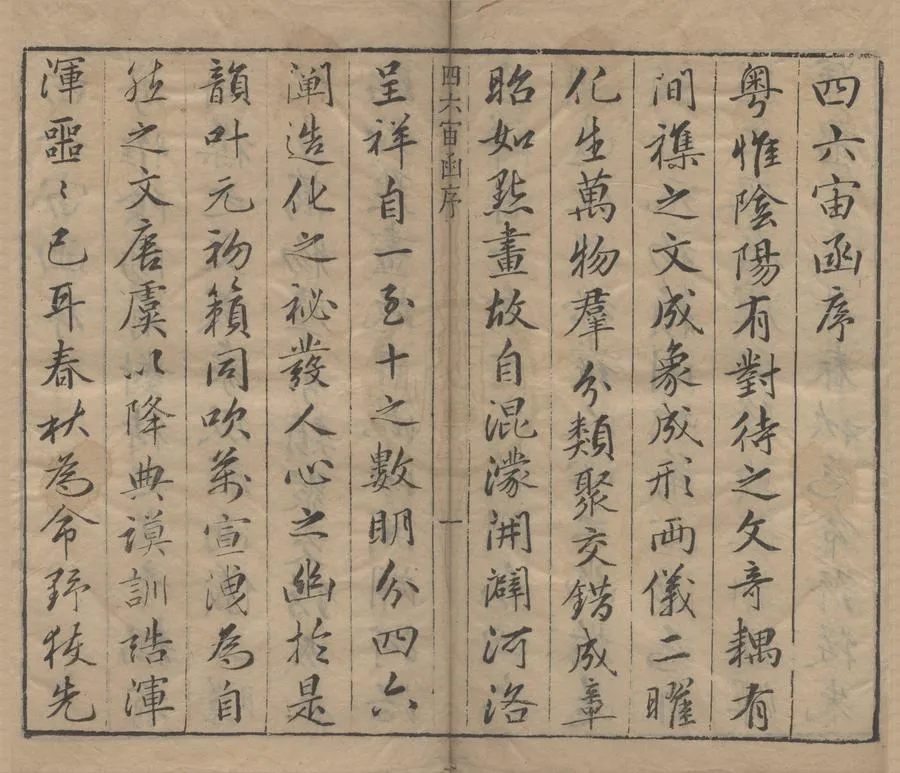 四六宙函序
粤惟陰陽有對待之文奇耦有
間襍之文成象成形兩儀二曜
化生萬物羣分類聚交錯成章
昭如㸃畫故自混濛開闢河洛
四六宙函序
一
呈祥自一至十之數眀分四六
闡造化之祕發人心之幽於是
韻叶元初籟同吹萬宣洩為自
然之文唐虞以降典謨訓誥渾
渾噩〻已耳春秋為命野獲先